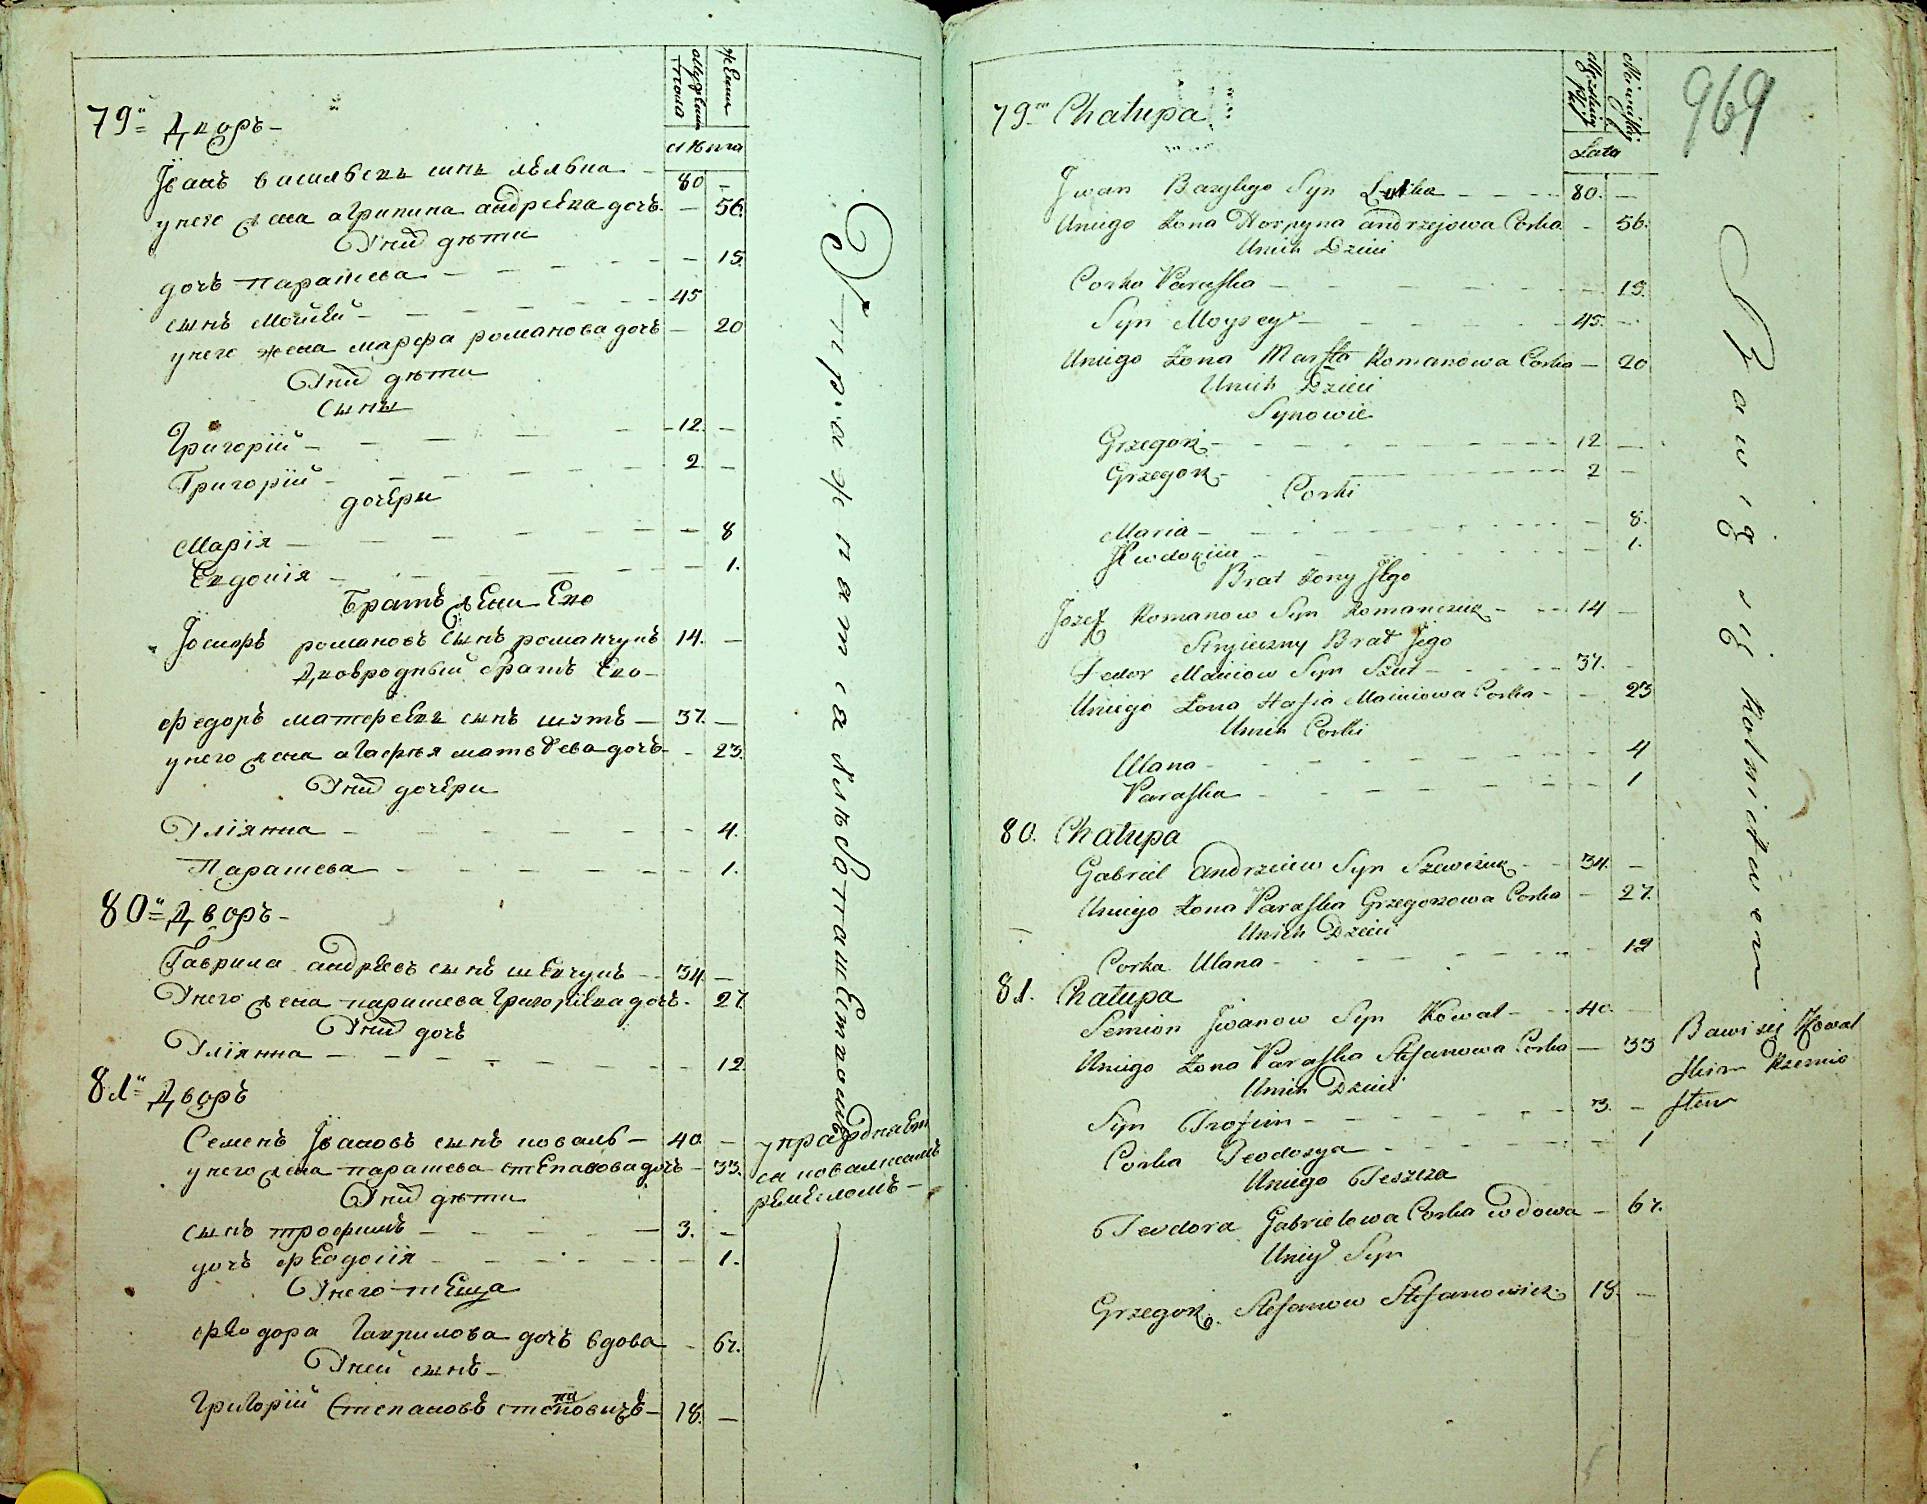 мужеска пола
женска
лѣта
79й Дворъ
Іванъ васильевъ сынъ
80
у него жена агрипина андрѣева дочь
56
У ний дѣти
дочь парасшева
15
сынъ Мойсей
45
у него жена марфа романова дочь
20
У ний дѣти
Сыны
Григорій
12
Григорій
2
дочери
Марія
8
Евдокія
1
братъ жени Его
Іосифъ романовъ сынъ романчукъ
14
Двоюродный братъ Его
Федоръ матфеевъ сынъ шутъ
37
у него жена агафья матвѣева дочь
23
У ний дочери
Уліянна
4
Парасшева
1
80й Дворъ
Гаврила андрѣевъ сынъ шевчукъ
34
У него жена парасшева григорїева дочь
27
У ний дочь
Уліянна
12
81й Дворъ
Семенъ Івановъ сынъ коваль
40
у него жена парасшева степанова дочь
33
У ний дѣти
сынъ трофимъ
3
дочь феодосія
1
У него теща
феодора Гаврилова дочь вдова
67
У ней сынъ
Григорій Степановъ степановичъ
18
Упражняютса хлѣбопашествомъ
упражняет
са ковалскимъ
ремесломъ
969
Męzkiey płci
Lata
79. Chałupa
Iwan Bazylego Syn
80
Uniego Żona Horpyna andrzejowa Corka
56
Unich Dzieci
Corka Paraska
15
Syn Moysey
45
Uniego Żona Marfta Romanowa Corka
20
Unich Dzieci
Synowie
Grzegorz
12
Grzegorz
2
Corki
Maria
8
Iewdokiia
1
Brat Żony Iego
Jozef Romanow Syn Romanczuk
14
Stryieczny Brat Jego
Fedor Maciiow Syn Szut
37
Uniego Żona Hafia Maciiowa Corka
23
Unich Corki
Ulana
4
Paraska
1
80. Chałupa
Gabriel Andrzeiew Syn Szewczuk
34
Uniego Żona Paraska Grzegorzowa Corka
27
Unich Dzieci
Corka Ulana
12
81. Chałupa
Semion Iwanow Syn Kowal
40
Uniego Żona Paraska Stefanowa Corka
33
Unich Dzieci
Syn Trofim
3
Corka Teodozya
1
Uniego Teszcza
Teodora Gabrielowa Corka wdowa
67
Uniey Syn
Grzegorz Stefanow Stefanowicz
18
Bawią się Rolnictwem
Bawi się Kowal
skim Rzemio
słem